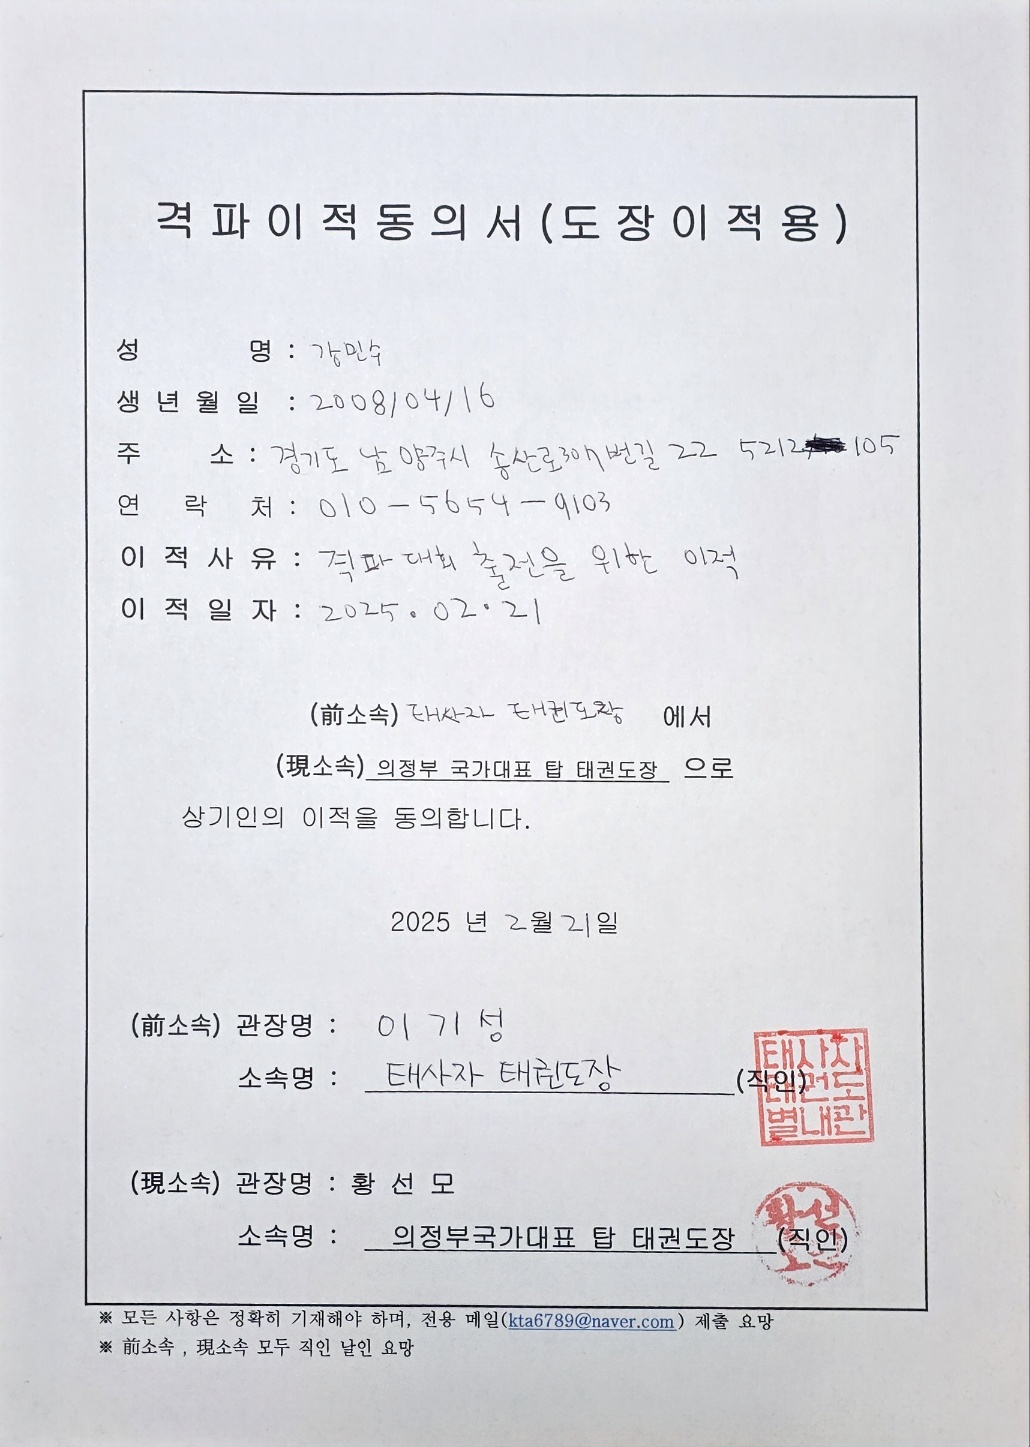 격파이적동의서(도장이적용)
성 명 : 강민수
생년월일 : 2008/04/16
주 소 : 경기도 남양주시 송산로 번길 22 5212 105
연 락 처 : 010-5654-9103
이적사유 : 격파대회 출전을 위한 이적
이적일자 : 2025.02.21
(前소속) 태사자 태권도장 에서
(現소속) 의정부 국가대표 탑 태권도장 으로
상기인의 이적을 동의합니다.
2025 년 2월 21일
(前소속) 관장명 : 이기성
소속명 : 태사자 태권도장 (직인)
태사자
태권도
별내관
(現소속) 관장명 : 황 선 모
소속명 : 의정부국가대표 탑 태권도장 (직인)
황선
모인
※ 모든 사항은 정확히 기재해야 하며, 전용 메일(kta6789@naver.com) 제출 요망
※ 前소속 , 現소속 모두 직인 날인 요망